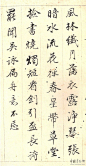 風林纖月落衣露淨琴張
暗水流花徑春星帶草堂
檢書燒燭短看劍引盃長詩
罷聞吳詠扁舟意不忘